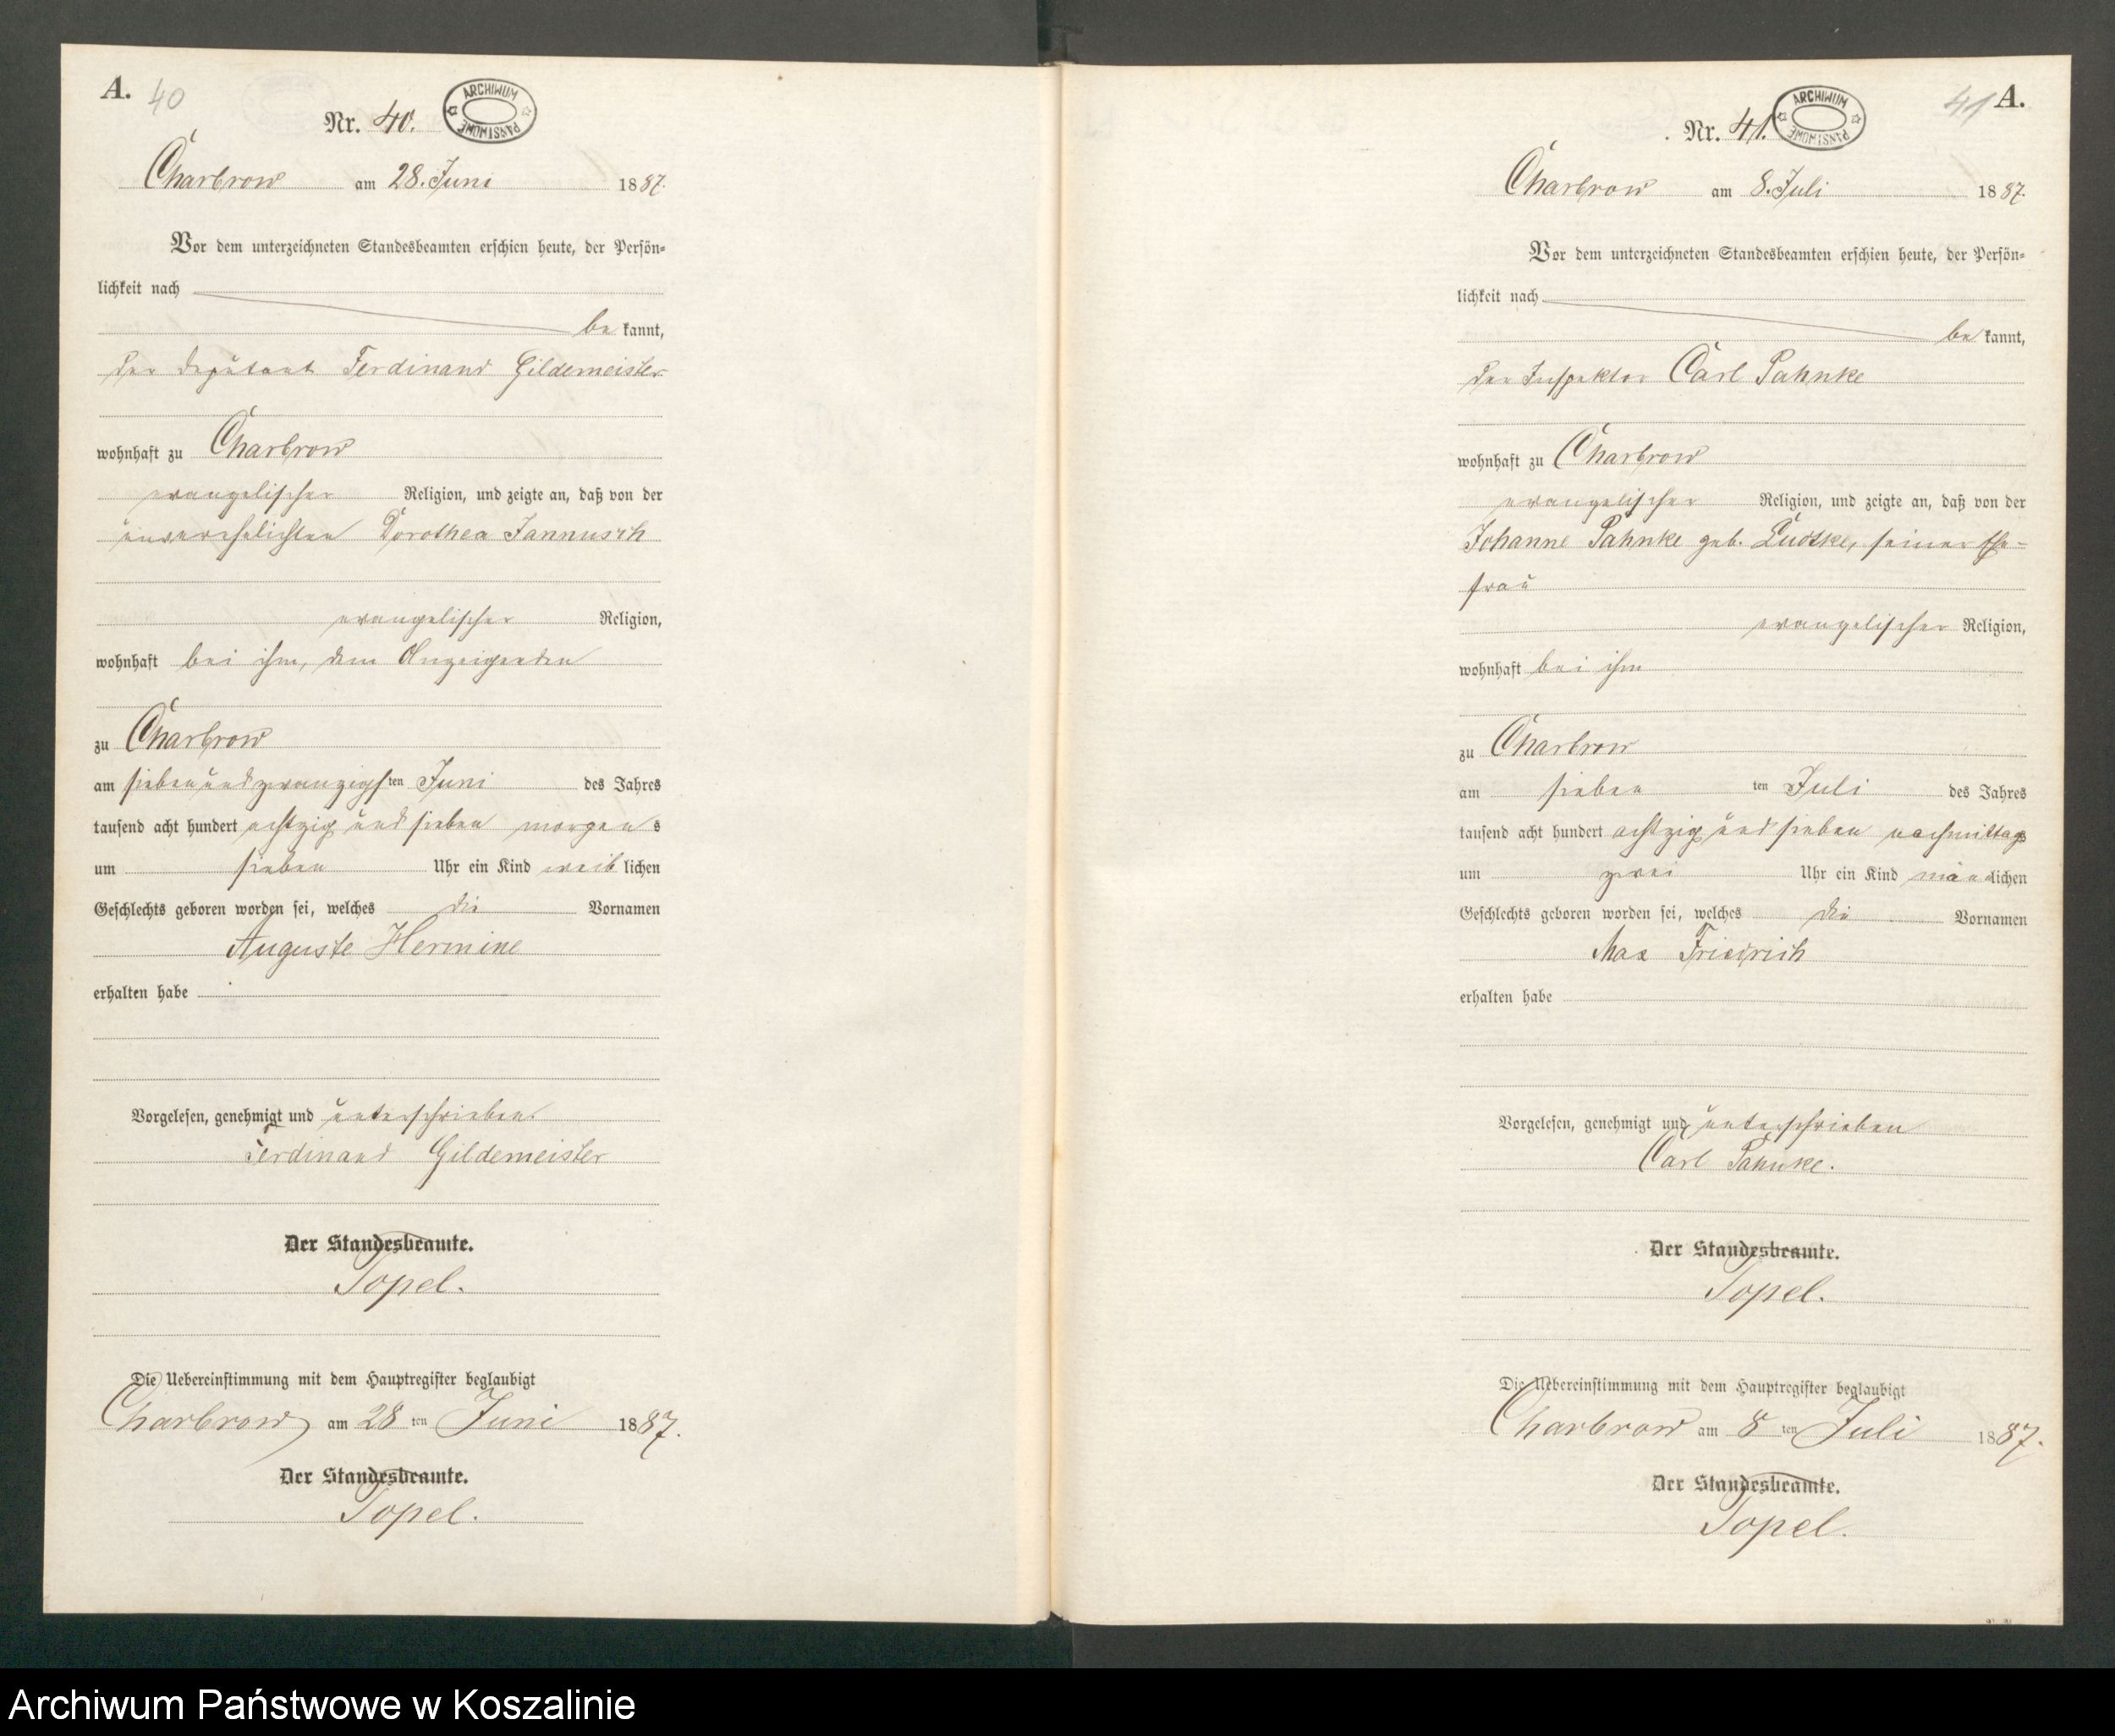 A. 40
Nr. 40.
ARCHIWUM PAŃSTWOWE
Charbrow am 28. Juni 1887.
Vor dem unterzeichneten Standesbeamten erschien heute, der Persön-
lichkeit nach
be kannt,
der Deputant Ferdinand Gildemeister
wohnhaft zu Charbrow
evangelischer Religion, und zeigte an, daß von der
unverehelichten Dorothea Jannusch
evangelischer Religion,
wohnhaft bei ihm, dem Anzeigenden
zu Charbrow
am siebenundzwanzigsten Juni des Jahres
tausend acht hundert achtzig und sieben morgens
um sieben Uhr ein Kind weiblichen
Geschlechts geboren worden sei, welches die Vornamen
Auguste Hermine
erhalten habe
Vorgelesen, genehmigt und unterschrieben.
Ferdinand Gildemeister
Der Standesbeamte.
Topel.
Die Uebereinstimmung mit dem Hauptregister beglaubigt
Charbrow am 28 ten Juni 1887.
Der Standesbeamte.
Topel.
41 A.
Nr. 41.
ARCHIWUM PAŃSTWOWE
Charbrow am 8. Juli 1887.
Vor dem unterzeichneten Standesbeamten erschien heute, der Persön-
lichkeit nach
be kannt,
der Inspektor Carl Pahnke
wohnhaft zu Charbrow
evangelischer Religion, und zeigte an, daß von der
Johanne Pahnke geb. Ludtke, seiner Ehe-
frau
evangelischer Religion,
wohnhaft bei ihm
zu Charbrow
am sieben ten Juli des Jahres
tausend acht hundert achtzig und sieben nachmittags
um zwei Uhr ein Kind männlichen
Geschlechts geboren worden sei, welches die Vornamen
Max Friedrich
erhalten habe
Vorgelesen, genehmigt und unterschrieben
Carl Pahnke.
Der Standesbeamte.
Topel.
Die Uebereinstimmung mit dem Hauptregister beglaubigt
Charbrow am 8 ten Juli 1887.
Der Standesbeamte.
Topel.
Archiwum Państwowe w Koszalinie